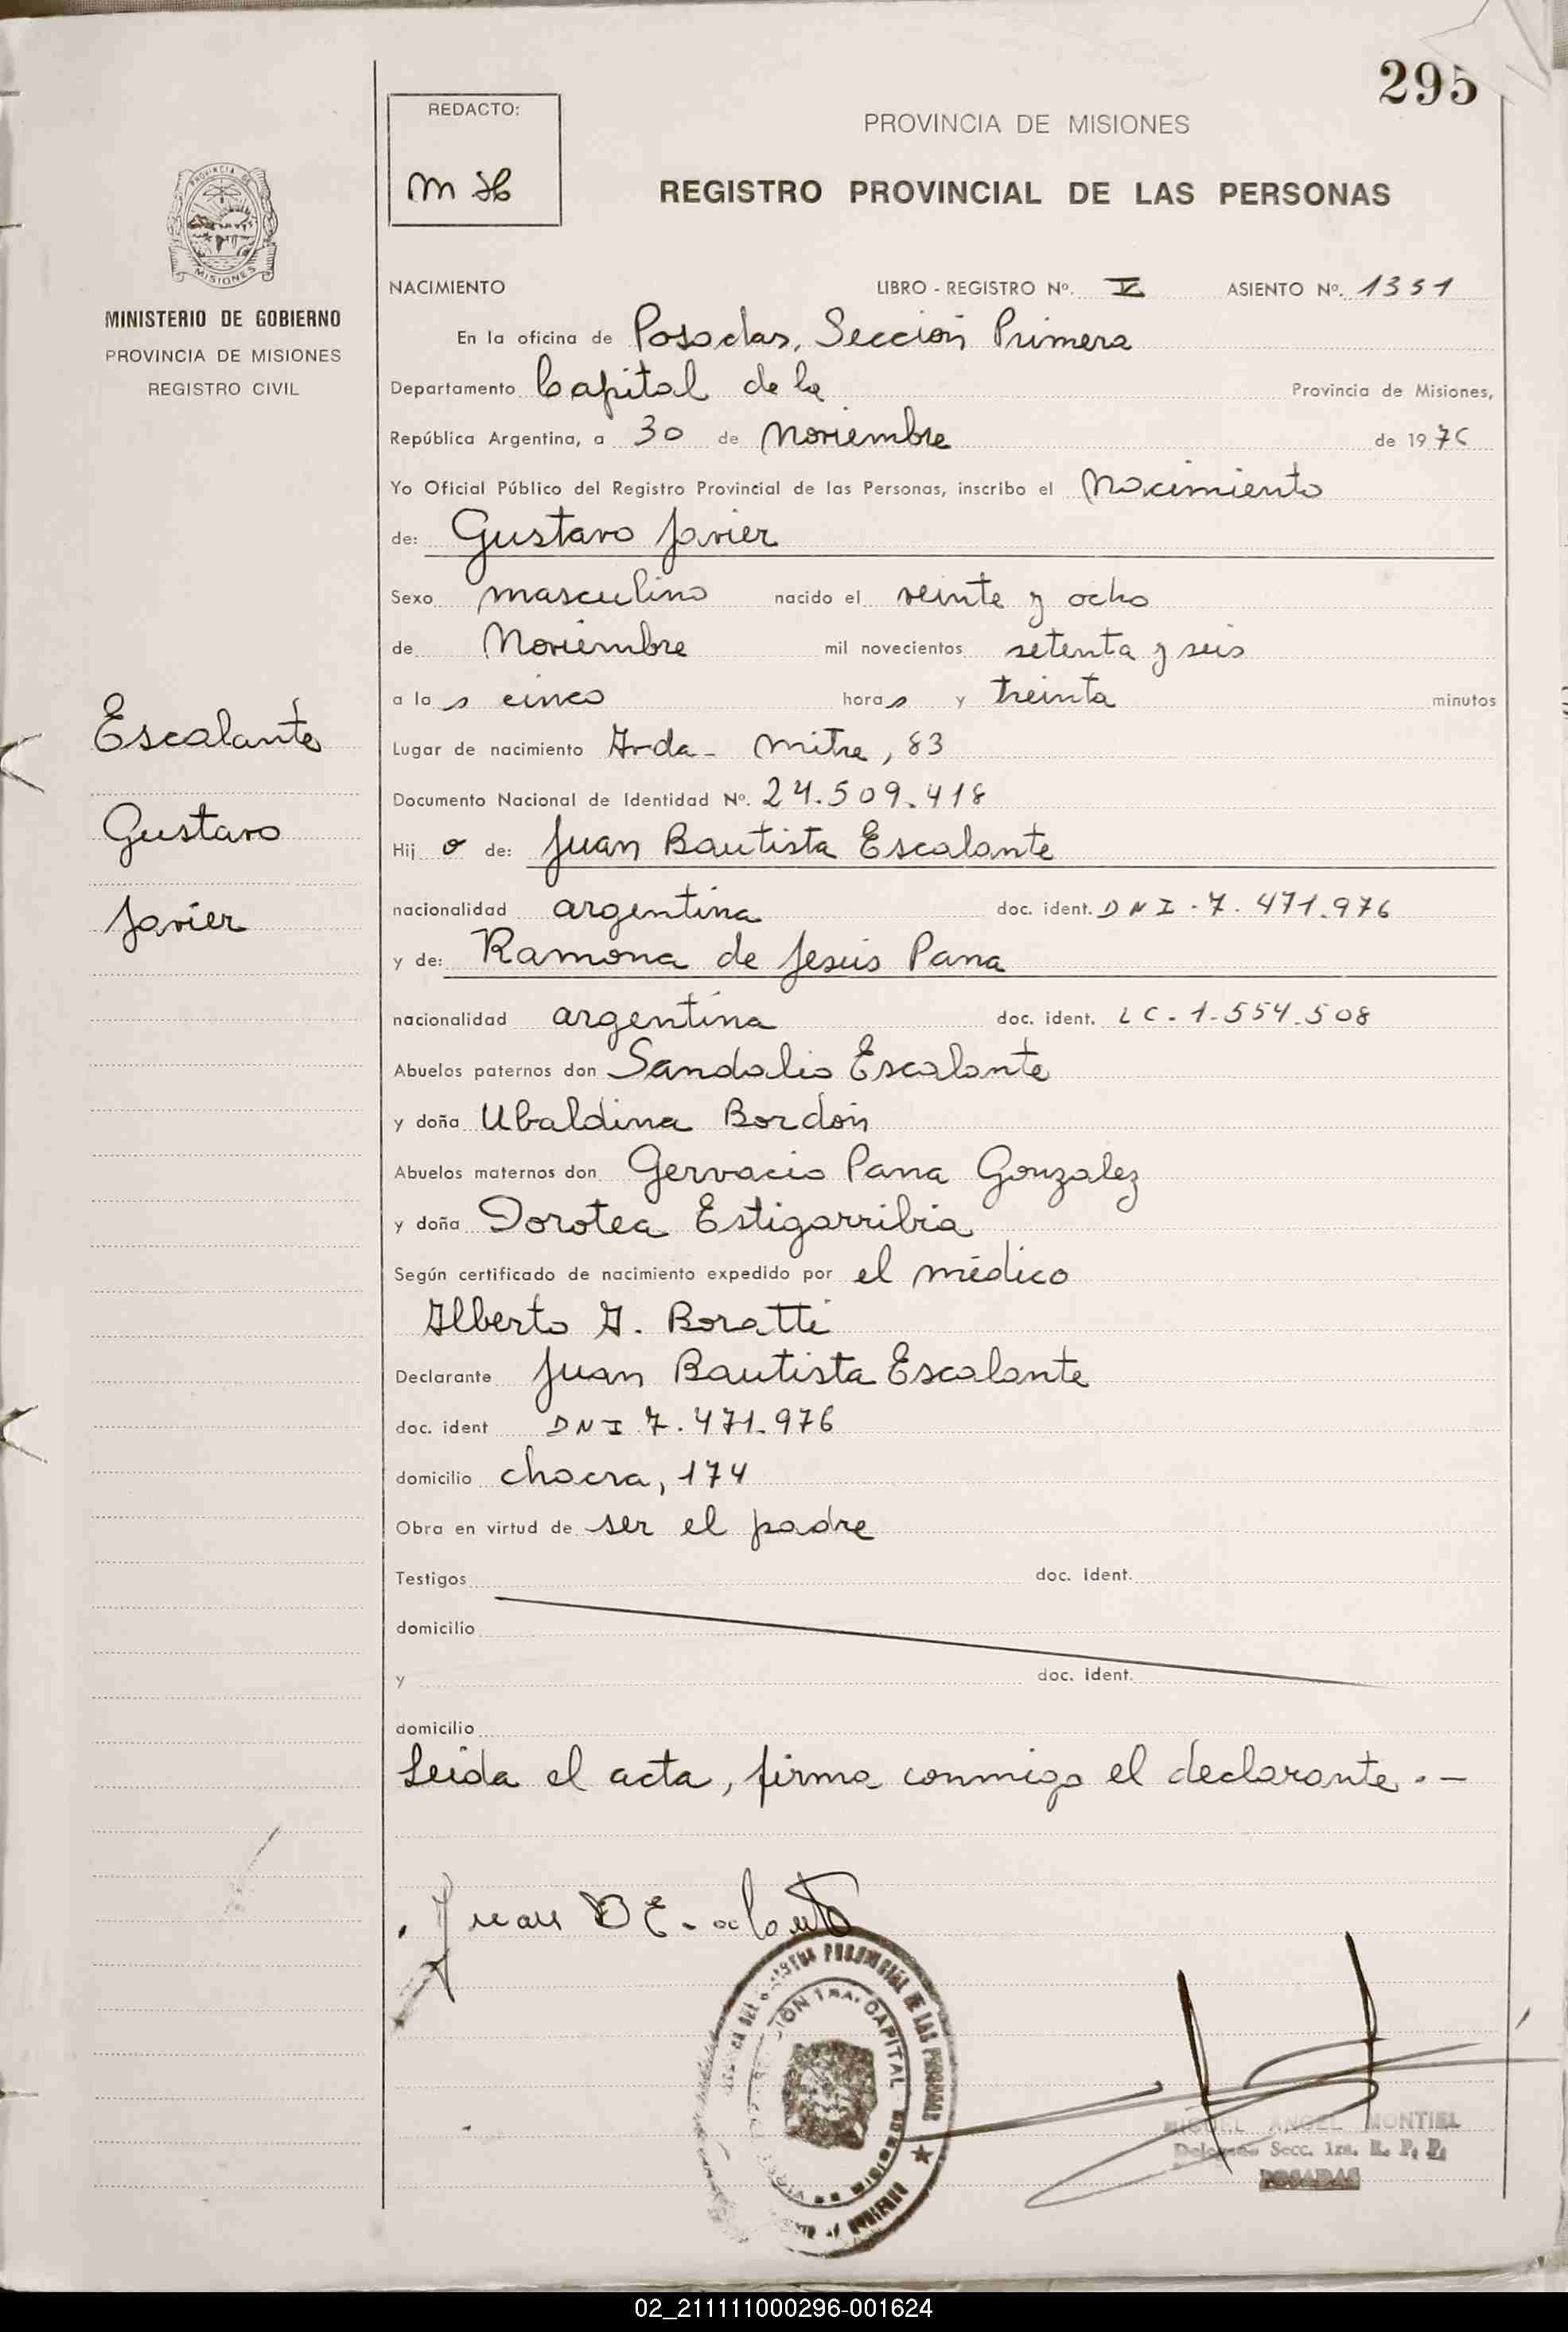 295
REDACTO:
PROVINCIA DE MISIONES
REGISTRO PROVINCIAL DE LAS PERSONAS
PROVINCIA DE
MISIONES
MINISTERIO DE GOBIERNO
PROVINCIA DE MISIONES
REGISTRO CIVIL
NACIMIENTO LIBRO - REGISTRO Nº. V ASIENTO Nº. 1351
En la oficina de Posadas, Sección Primera
Departamento Capital de la Provincia de Misiones,
República Argentina, a 30 de Noviembre de 1976
Yo Oficial Público del Registro Provincial de las Personas, inscribo el Nacimiento
de: Gustavo Javier
Sexo masculino nacido el veinte y ocho
de Noviembre mil novecientos setenta y seis
a la s cinco hora s y treinta minutos
Escalante
Lugar de nacimiento Avda- Mitre, 83
Documento Nacional de Identidad Nº. 24.509.418
Gustavo
Hij o de: Juan Bautista Escalante
Javier
nacionalidad argentina doc. ident. DNI - 7. 471.976
y de: Ramona de Jesús Pana
nacionalidad argentina doc. ident. LC - 1-554.508
Abuelos paternos don Sandalio Escalante
y doña Ubaldina Bordón
Abuelos maternos don Gervacio Pana Gonzalez
y doña Dorotea Estigarribia
Según certificado de nacimiento expedido por el médico
Alberto A. Boratti
Declarante Juan Bautista Escalante
doc. ident DNI 7. 471.976
domicilio chacra, 174
Obra en virtud de ser el padre
Testigos doc. ident.
domicilio
y doc. ident.
domicilio
Leida el acta, firma conmigo el declarante. -
Juan B E
PROVINCIAL DE LAS PERSONAS
1RA. CAPITAL
MIGUEL ANGEL MONTIEL
Delegado Secc. 1ra. R. P. P.
POSADAS
02_211111000296-001624